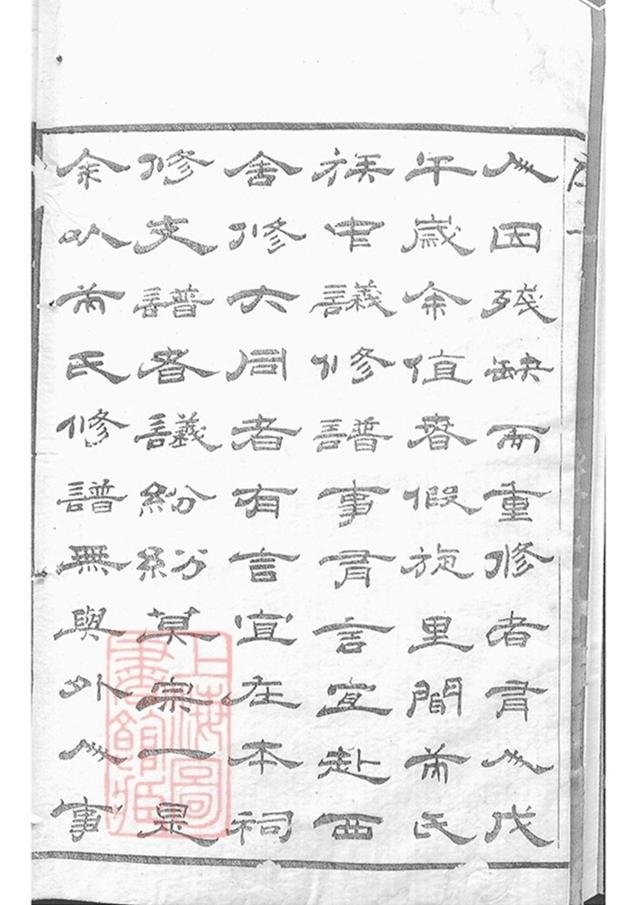 序 一
人因殘缺而重修者有人戊
午歲余值春假旋里間芮氏
族中議修譜事有言宜赴西
舍修大同者有言宜在本祠
修支譜者議紛紛莫宗一是
余以芮氏修譜無與外人事
上海圖
書館藏